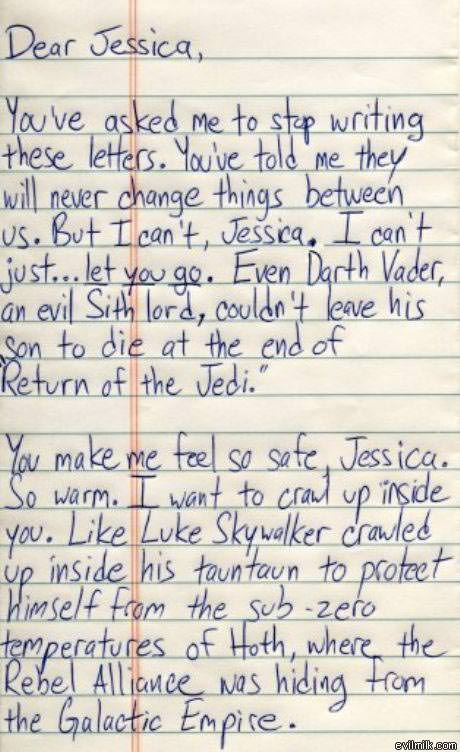 Dear Jessica,
You've asked me to stop writing
these letters. You've told me they
will never change things between
us. But I can't, Jessica. I can't
just...let you go. Even Darth Vader,
an evil Sith lord, couldn't leave his
son to die at the end of
"Return of the Jedi."
You make me feel so safe, Jessica.
So warm. I want to crawl up inside
you. Like Luke Skywalker crawled
up inside his tauntaun to protect
himself from the sub-zero
temperatures of Hoth, where the
Rebel Alliance was hiding from
the Galactic Empire.
evilmilk.com